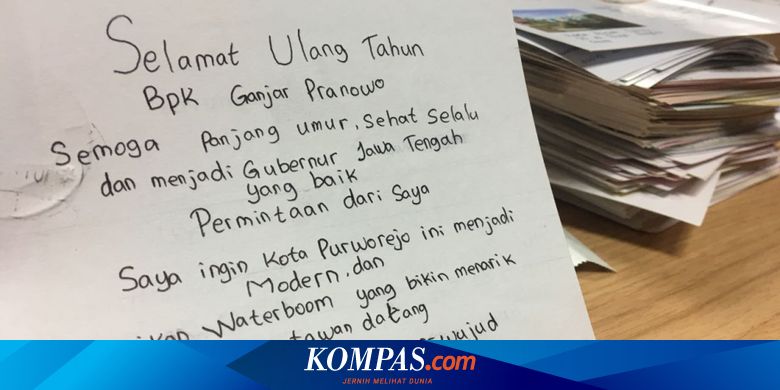 Selamat Ulang Tahun
Bpk Ganjar Pranowo
Semoga Panjang umur, Sehat selalu
dan menjadi Gubernur Jawa Tengah
yang baik
Permintaan dari Saya
Saya ingin Kota Purworejo ini menjadi
Modern, dan
Waterboom yang bikin menarik
datang
KOMPAS.com
JERNIH MELIHAT DUNIA